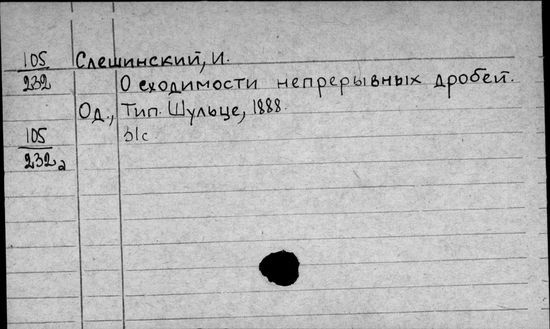 105 Слешинский, И.
232 О сходимости непрерывных дробей.
Од., Тип. Шульце, 1888.
105 31с
232а